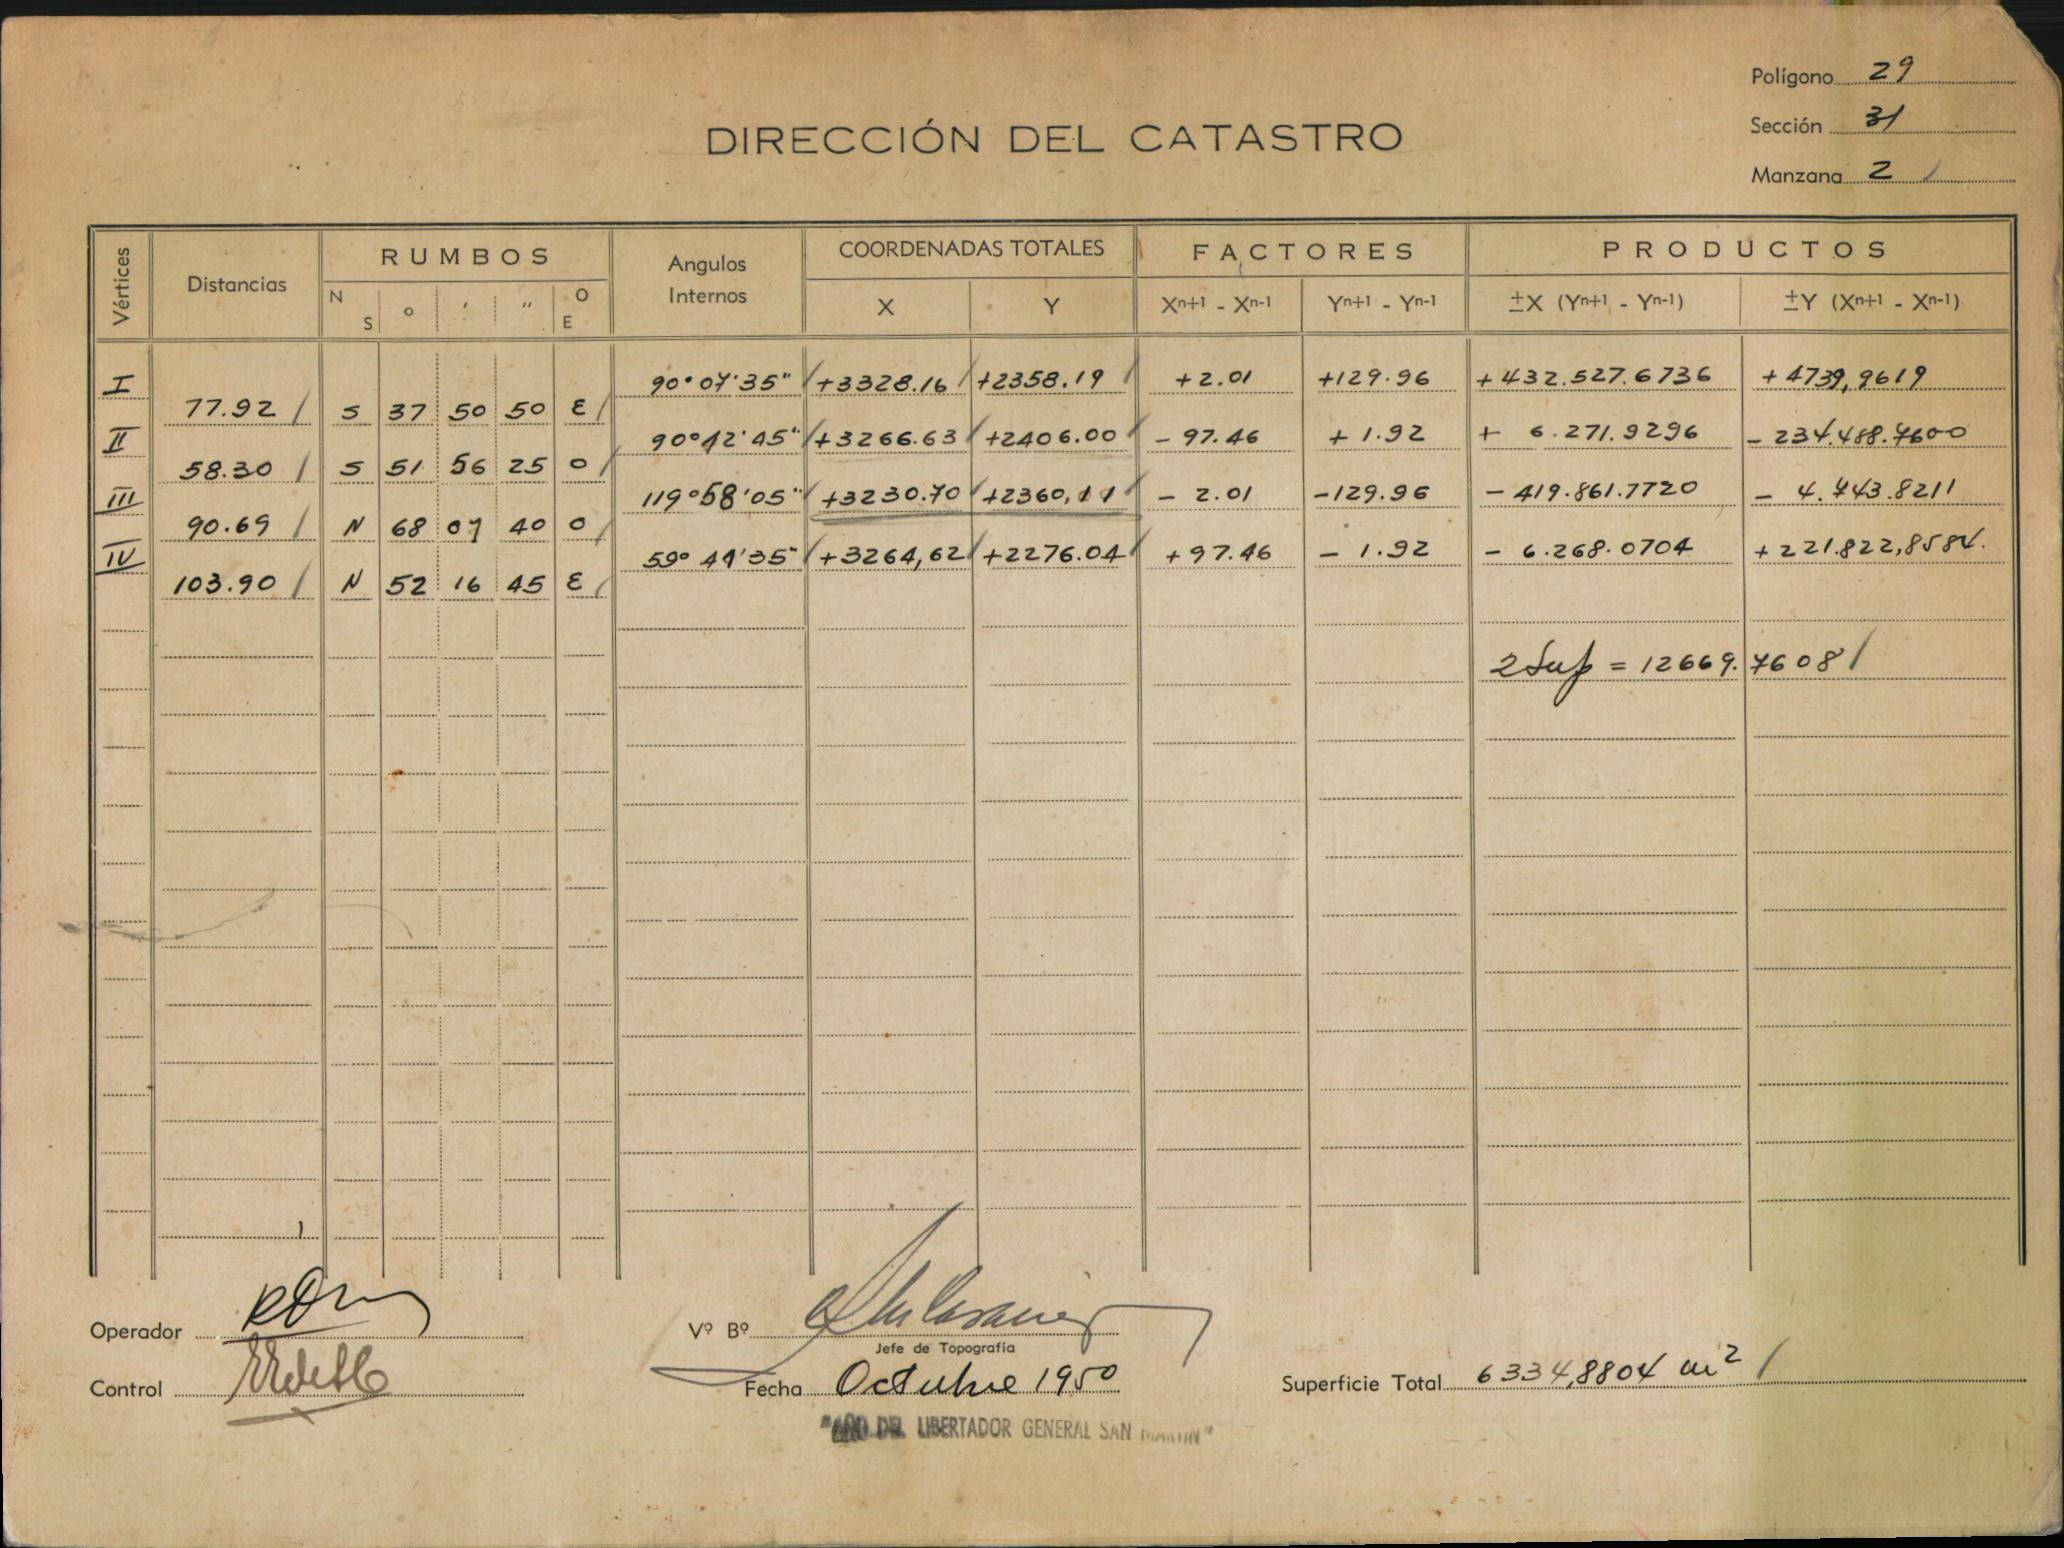 Polígono 29
Sección 31
Manzana 2 /
DIRECCIÓN DEL CATASTRO
Vértices Distancias RUMBOS Angulos Internos COORDENADAS TOTALES FACTORES PRODUCTOS
N S o ' " O E X Y Xn+1 - Xn-1 Yn+1 - Yn-1 ±X (Yn+1 - Yn-1) ±Y (Xn+1 - Xn-1)
I 90°07'35" +3328.16 +2358.19 +2.01 +129.96 +432.527.6736 +4739,9619
77.92 S 37 50 50 E
II 90°12'45" +3266.63 +2406.00 - 97.46 + 1.92 + 6.271.9296 - 234.488.7600
58.30 S 51 56 25 O
III 119°58'05" +3230.70 +2360,11 - 2.01 -129.96 - 419.861.7720 - 4.743.8211
90.69 N 68 07 40 O
IV 59°41'35" +3264,62 +2276.04 +97.46 - 1.92 - 6.268.0704 +221.822,8584.
103.90 N 52 16 45 E
2 Sup = 12669.7608 /
Operador
Control
Vº Bº
Jefe de Topografía
Fecha Octubre 1950
Superficie Total 6334,8804 m² /
"AÑO DEL LIBERTADOR GENERAL SAN MARTIN"